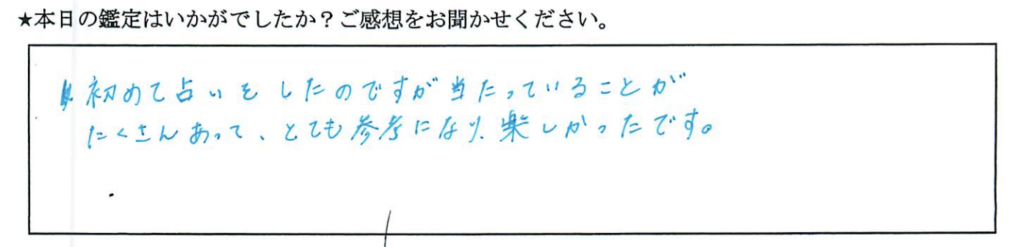 ★本日の鑑定はいかがでしたか？ご感想をお聞かせください。
初めて占いをしたのですが当たっていることが
たくさんあって、とても参考になり、楽しかったです。